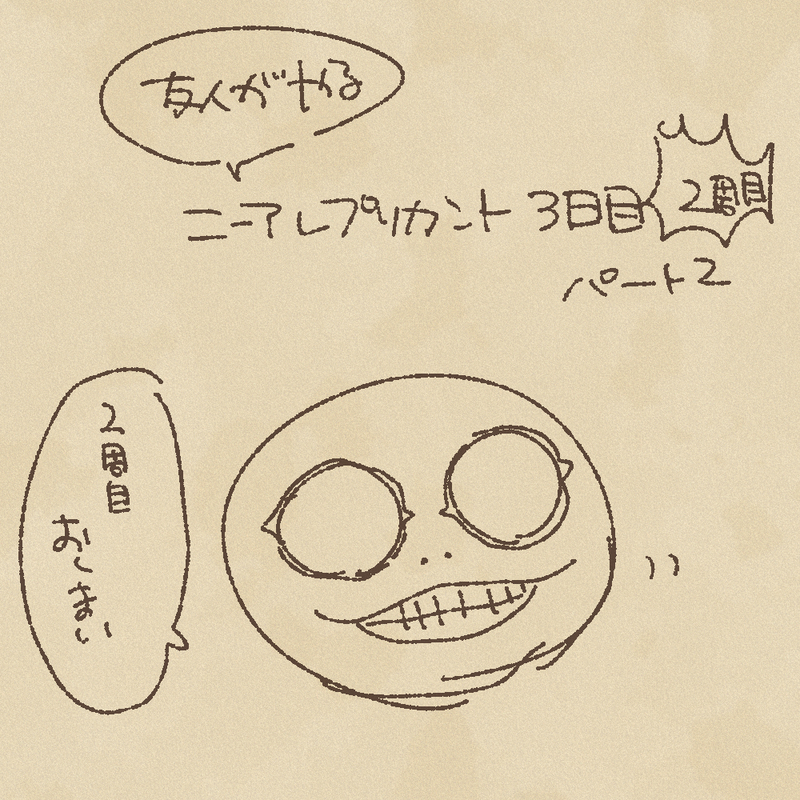 友人がやる
ニーアレプリカント3日目
2周目
パート2
2周目
おしまい